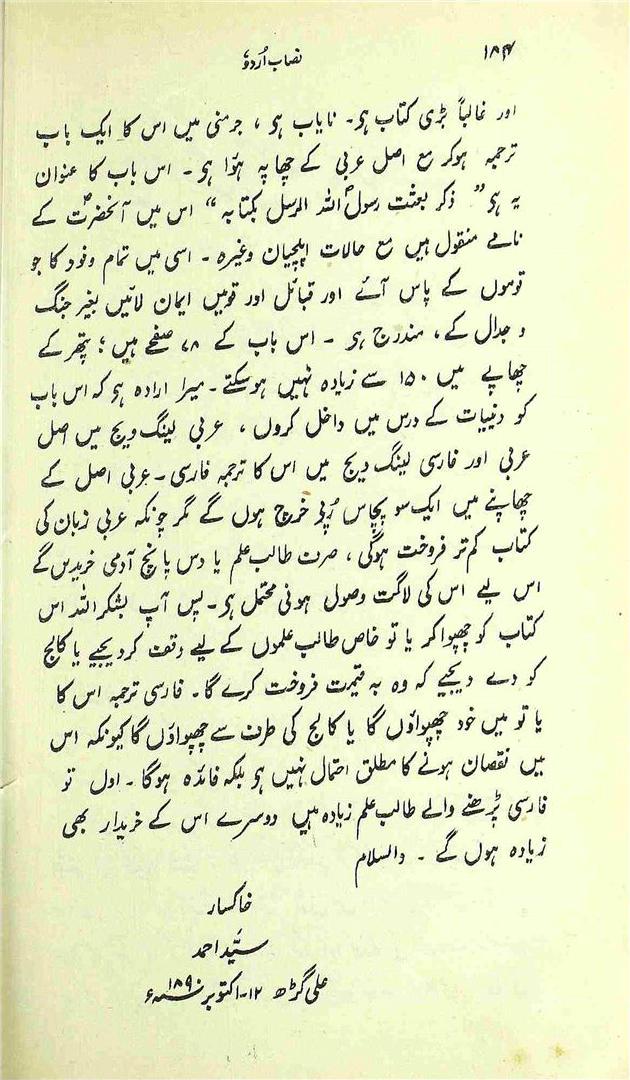 نصاب اُردو
اور غالباً بڑی کتاب ہو۔ نایاب ہو، جرمنی میں اس کا ایک باب
ترجمہ ہوکر مع اصل عربی کے چھاپہ ہوٗا ہو۔ اس باب کا عنوان
یہ ہو ”ذکر بعثت رسولؐ اللہ المرسل بکتابہ“ اس میں آنحضرتؐ کے
نامے منقول ہیں مع حالات ایلچیان وغیرہ۔ اسی میں تمام وفود کا جو
قوموں کے پاس آئے اور قبائل اور قومیں ایمان لائیں بغیر جنگ
و جدال کے، مندرج ہو۔ اس باب کے ۷۸ صفحے ہیں؛ پتھر کے
چھاپے میں ۱۵۰ سے زیادہ نہیں ہوسکتے۔ میرا ارادہ ہو کہ اس باب
کو دنییات کے درس میں داخل کروں، عربی لینگ ویج میں اصل
عربی اور فارسی لینگ ویج میں اس کا ترجمہ فارسی۔ عربی اصل کے
چھاپنے میں ایک سو پچاس رُپیٔ خرچ ہوں گے مگر چونکہ عربی زبان کی
کتاب کم تر فروخت ہوگی، صرف طالب علم یا دس پانچ آدمی خریدیں گے
اس لیے اس کی لاگت وصول ہونی محتمل ہو۔ پس آپ بشکر اللہ اس
کتاب کو چھپوا کر یا تو خاص طالب علموں کے لیے وقف کردیجیے یا کالج
کو دے دیجیے کہ وہ بہ قیمت فروخت کرے گا۔ فارسی ترجمہ اس کا
یا تو میں خود چھپواؤں گا یا کالج کی طرف سے چھپواؤں گا کیونکہ اس
میں نقصان ہونے کا مطلق احتمال نہیں ہو بلکہ فائدہ ہوگا۔ اول تو
فارسی پڑھنے والے طالب علم زیادہ ہیں دوسرے اس کے خریدار بھی
زیادہ ہوں گے۔ والسلام
خاکسار
سیّد احمد
علی گڑھ ۱۲۔ اکتوبر ۱۸۹۰ء